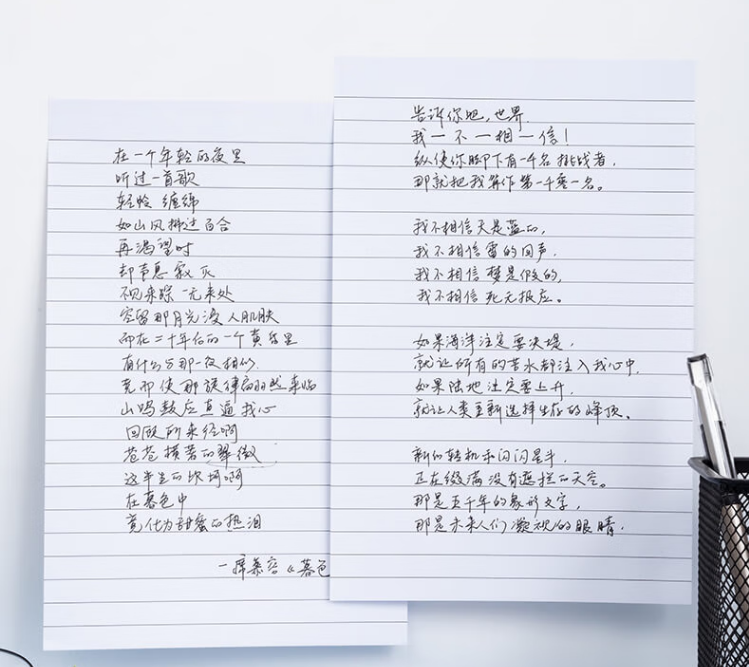 在一个年轻的夜里
听过一首歌
缠绵
如山风拂过百合
再渴望时
却声息寂灭
不见来踪 无来处
空留那月光浸人肌肤
而在二十年后的一个黄昏里
有什么与那一夜相似
竟而使那旋律翩然来临
山鸣鼓应直逼我心
回顾所来径啊
苍苍横著的翠微
这半生的坎坷啊
在暮色中
竟化为甜蜜的热泪
—席慕容《暮色
告诉你吧，世界
我一不一相一信！
纵使你脚下有一千名挑战者，
那就把我算作第一千零一名。
我不相信天是蓝的，
我不相信雷的回声，
我不相信梦是假的，
我不相信死无报应。
如果海洋注定要决堤，
就让所有的苦水都注入我心中，
如果陆地注定要上升，
就让人类重新选择生存的峰顶。
新的转机和闪闪星斗，
正在缀满没有遮拦的天空。
那是五千年的象形文字，
那是未来人们凝视的眼睛。